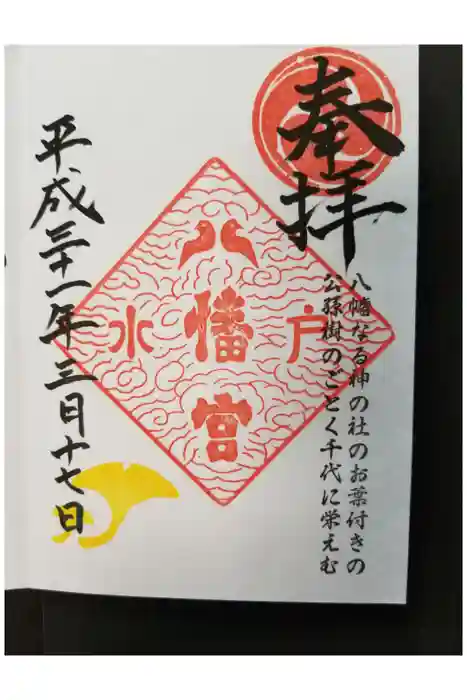 奉拝
八幡なる神の社のお葉付きの
公孫樹のごとく千代に栄えむ
水戸
八幡宮
平成三十一年三月十七日